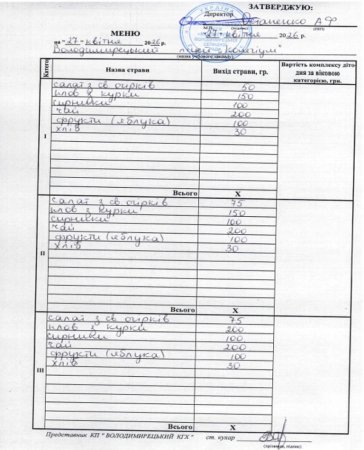 ЗАТВЕРДЖУЮ:
Директор
Остапенко А Ф
МЕНЮ
на "27" квітня 2026 "27" квітня 2026
Володимирецький ліцей "Колегіум"
(назва учбового закладу)
Назва страви Вихід страви, гр. Вартість комплексу дітодня за віковою категорією, грн.
I
салат з св огірків 50
плов з курки 150
сирники 100
чай 200
фрукти (яблука) 100
хліб 30
Всього Х
II
салат з св огірків 75
плов з курки 150
сирники 100
чай 200
фрукти (яблука) 100
хліб 30
Всього Х
III
салат з св огірків 75
плов з курки 200
сирники 100
чай 200
фрукти (яблука) 100
хліб 30
Всього Х
Представник КП " ВОЛОДИМИРЕЦЬКИЙ КГХ " ст. кухар